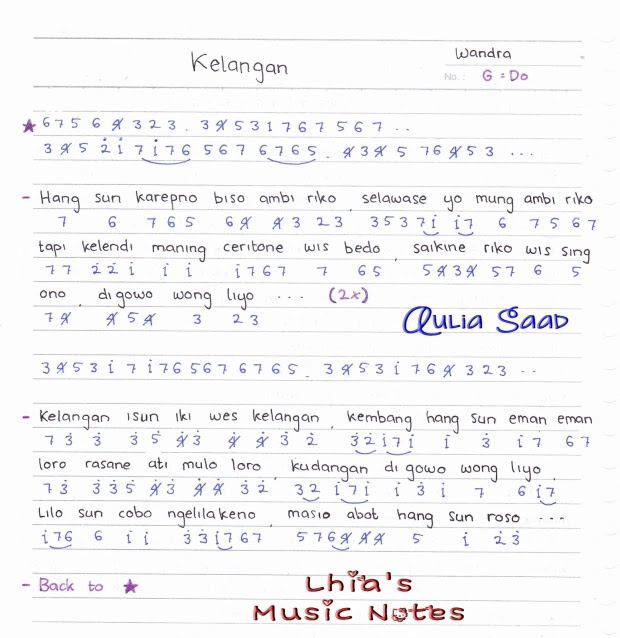 Kelangan
Wandra
No.: G = Do
★ 6 7 5 6 4̸ 3 2 3 . 3 4̸ 5 3 1 7 6 7 5 6 7 ..
3 4̸ 5 2̇ 1̇ 7 1̇ 7 6 5 6 7 6 7 6 5 . 4̸ 3 4̸ 5 7 6 4̸ 5 3 ...
- Hang sun karepno biso ambi riko , selawase yo mung ambi riko
7 6 7 6 5 6 4̸ 4̸ 3 2 3 3 5 3 7 1̇ 1̇ 7 6 7 5 6 7
tapi kelendi maning ceritone wis bedo , saikine riko wis sing
7 7 2̇ 2̇ 1̇ 1̇ 1̇ 1̇ 7 6 7 7 6 5 5 4̸ 3 4̸ 5 7 6 5
ono , di gowo wong liyo ... (2x)
7 4̸ 4̸ 5 4̸ 3 2 3
Aulia Saad
3 4̸ 5 3 1̇ 7 1̇ 7 6 5 6 7 6 7 6 5 . 3 4̸ 5 3 1̇ 7 6 4̸ 3 2 3 ..
- Kelangan isun iki wes kelangan , kembang hang sun eman eman
7 3̇ 3̇ 3̇ 5̇ 4̸̇ 3̇ 4̸̇ 4̸̇ 3̇ 2̇ 3̇ 2̇ 1̇ 7 1̇ 1̇ 3̇ 1̇ 7 6 7
loro rasane ati mulo loro , kudangan di gowo wong liyo ,
7 3̇ 3̇ 3̇ 5̇ 4̸̇ 3̇ 4̸̇ 4̸̇ 3̇ 2̇ 3̇ 2̇ 1̇ 7 1̇ 1̇ 3̇ 1̇ 7 6 1̇ 7
Lilo sun cobo ngelilakeno , masio abot hang sun roso ---
1̇ 7 6 6 1̇ 1̇ 3̇ 3̇ 1̇ 7 6 7 5 7 6 4̸ 4̸ 4̸ 5 1̇ 2̇ 3̇
- Back to ★
Lhia's
Music Notes